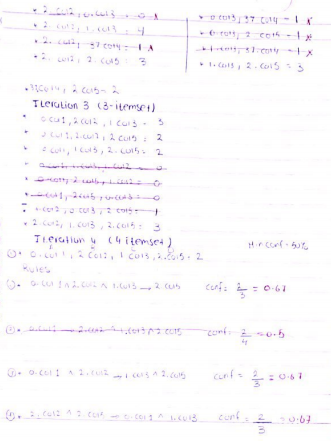 * 2. col2, 0.col3 = 0 x
* 2. col2, 1. col3 = 4
* 2. col2, 37 col4 = 1 x
* 2. col2, 2. col5 = 3
* 0.col3, 37 col4 = 1 x
* 0.col3, 2 col5 = 1 x
* 1.col3, 37 col4 = 1 x
* 1.col3, 2.col5 = 3
* 37col4, 2 col5 = 2
Iteration 3 (3-itemset)
* 0 col1, 2 col2, 1 col3 = 3
* 0 col1, 2.col2, 2 col5 = 2
* 0 col1, 1 col3, 2.col5 = 2
* 0.col1, 2.col5, 0.col3 = 0
* 2.col2, 1.col3, 2.col5 = 3
Iteration 4 (4 itemset)
Min conf = 50%
① 0.col1, 2 col2, 1 col3, 2.col5 = 2
Rules
① 0.col1 ^ 2.col2 ^ 1.col3 → 2 col5 conf = 2/3 = 0.67
② 0.col1 → 2.col2 ^ 1.col3 ^ 2.col5 conf = 2/4 = 0.5
③ 0.col1 ^ 2.col2 → 1.col3 ^ 2.col5 conf = 2/3 = 0.67
④ 2.col2 ^ 2.col5 → 0.col1 ^ 1.col3 conf = 2/3 = 0.67